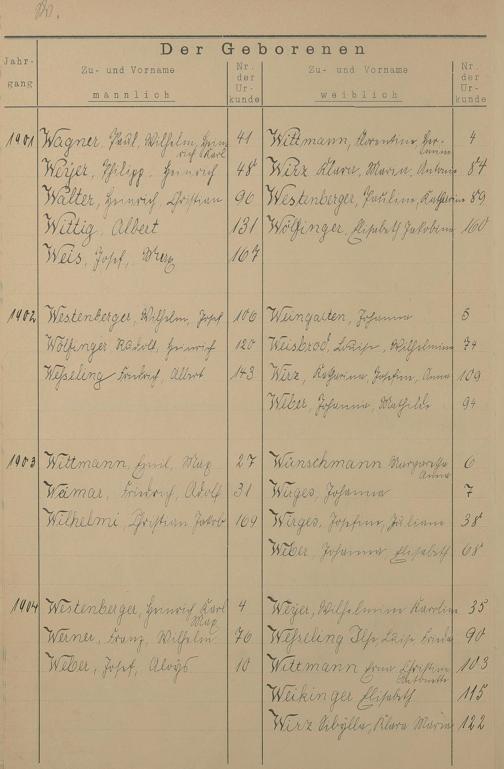 W.
Der Geborenen
Jahr-
gang
Zu- und Vorname
männlich
Nr.
der
Ur-
kunde
Zu- und Vorname
weiblich
Nr.
der
Ur-
kunde
1901 Wagner, Paul, Wilhelm, Hein- 41 Wittmann, Florentine, Her- 4
rich Karl
Weyer, Philipp, Heinrich 48 Wirz Klara, Maria, Antonie 84
Walter, Heinrich, Christian 96 Westenberger, Pauline, Katharina 89
Wittig, Albert 131 Wölfinger, Elisabeth Jakobine 160
Weis, Josef, Max 167
1902 Westenberger, Wilhelm, Josef 106 Weingarten, Johanna 5
Wölfinger Rudolf, Heinrich 120 Weisbrod, Luise, Wilhelmine 74
Weßeling Friedrich, Albert 143 Wirz, Katharina, Josefine, Anna 109
Weber, Johanna, Mathilde 94
1903 Wittmann, Emil, Max 27 Wünschmann Margaretha 6
Anna
Weimar, Friedrich, Adolf 31 Wirges, Johanna 7
Wilhelmi, Christian Jakob 169 Wirges, Josefine, Juliane 38
Weber, Johanna Elisabeth 68
1904 Westenberger, Heinrich Karl 4 Weyer, Wilhelmine Karoline 35
Max
Werner, Franz, Wilhelm 76 Weßeling Ilse, Luise Frieda 90
Weber, Josef, Aloys 10 Wittmann Erna Christine 103
Antonette
Weikinger Elisabeth 115
Wirz Sibylla, Klara Maria 122